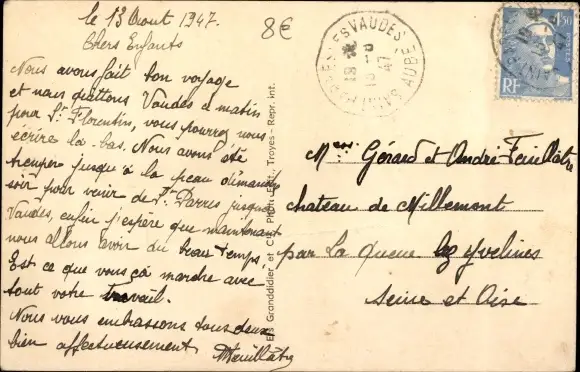 le 13 Aout 1947.
8€
Chers Enfants
Nous avons fait bon voyage
et nous quittons Vaudes ce matin
pour St Florentin, vous pourrez nous
écrire là-bas. Nous avons été
tremper jusqu'à la peau dimanche
soir pour venir de St Parres jusqu'à
Vaudes, enfin j'espère que maintenant
nous allons avoir du beau temps.
Est ce que vous ça marche avec
tout votre travail.
Nous vous embrassons tous deux
bien affectueusement
Ets Granddidier et Cie Phot.-Edit. Troyes - Repr. Int.
LES VAUDES
AUBE
18
13 -8
47
RF
4f50
Mrs Gérard et André Feuillâtre
chateau de Millemont
par La Queue lez Yvelines
Seine et Oise